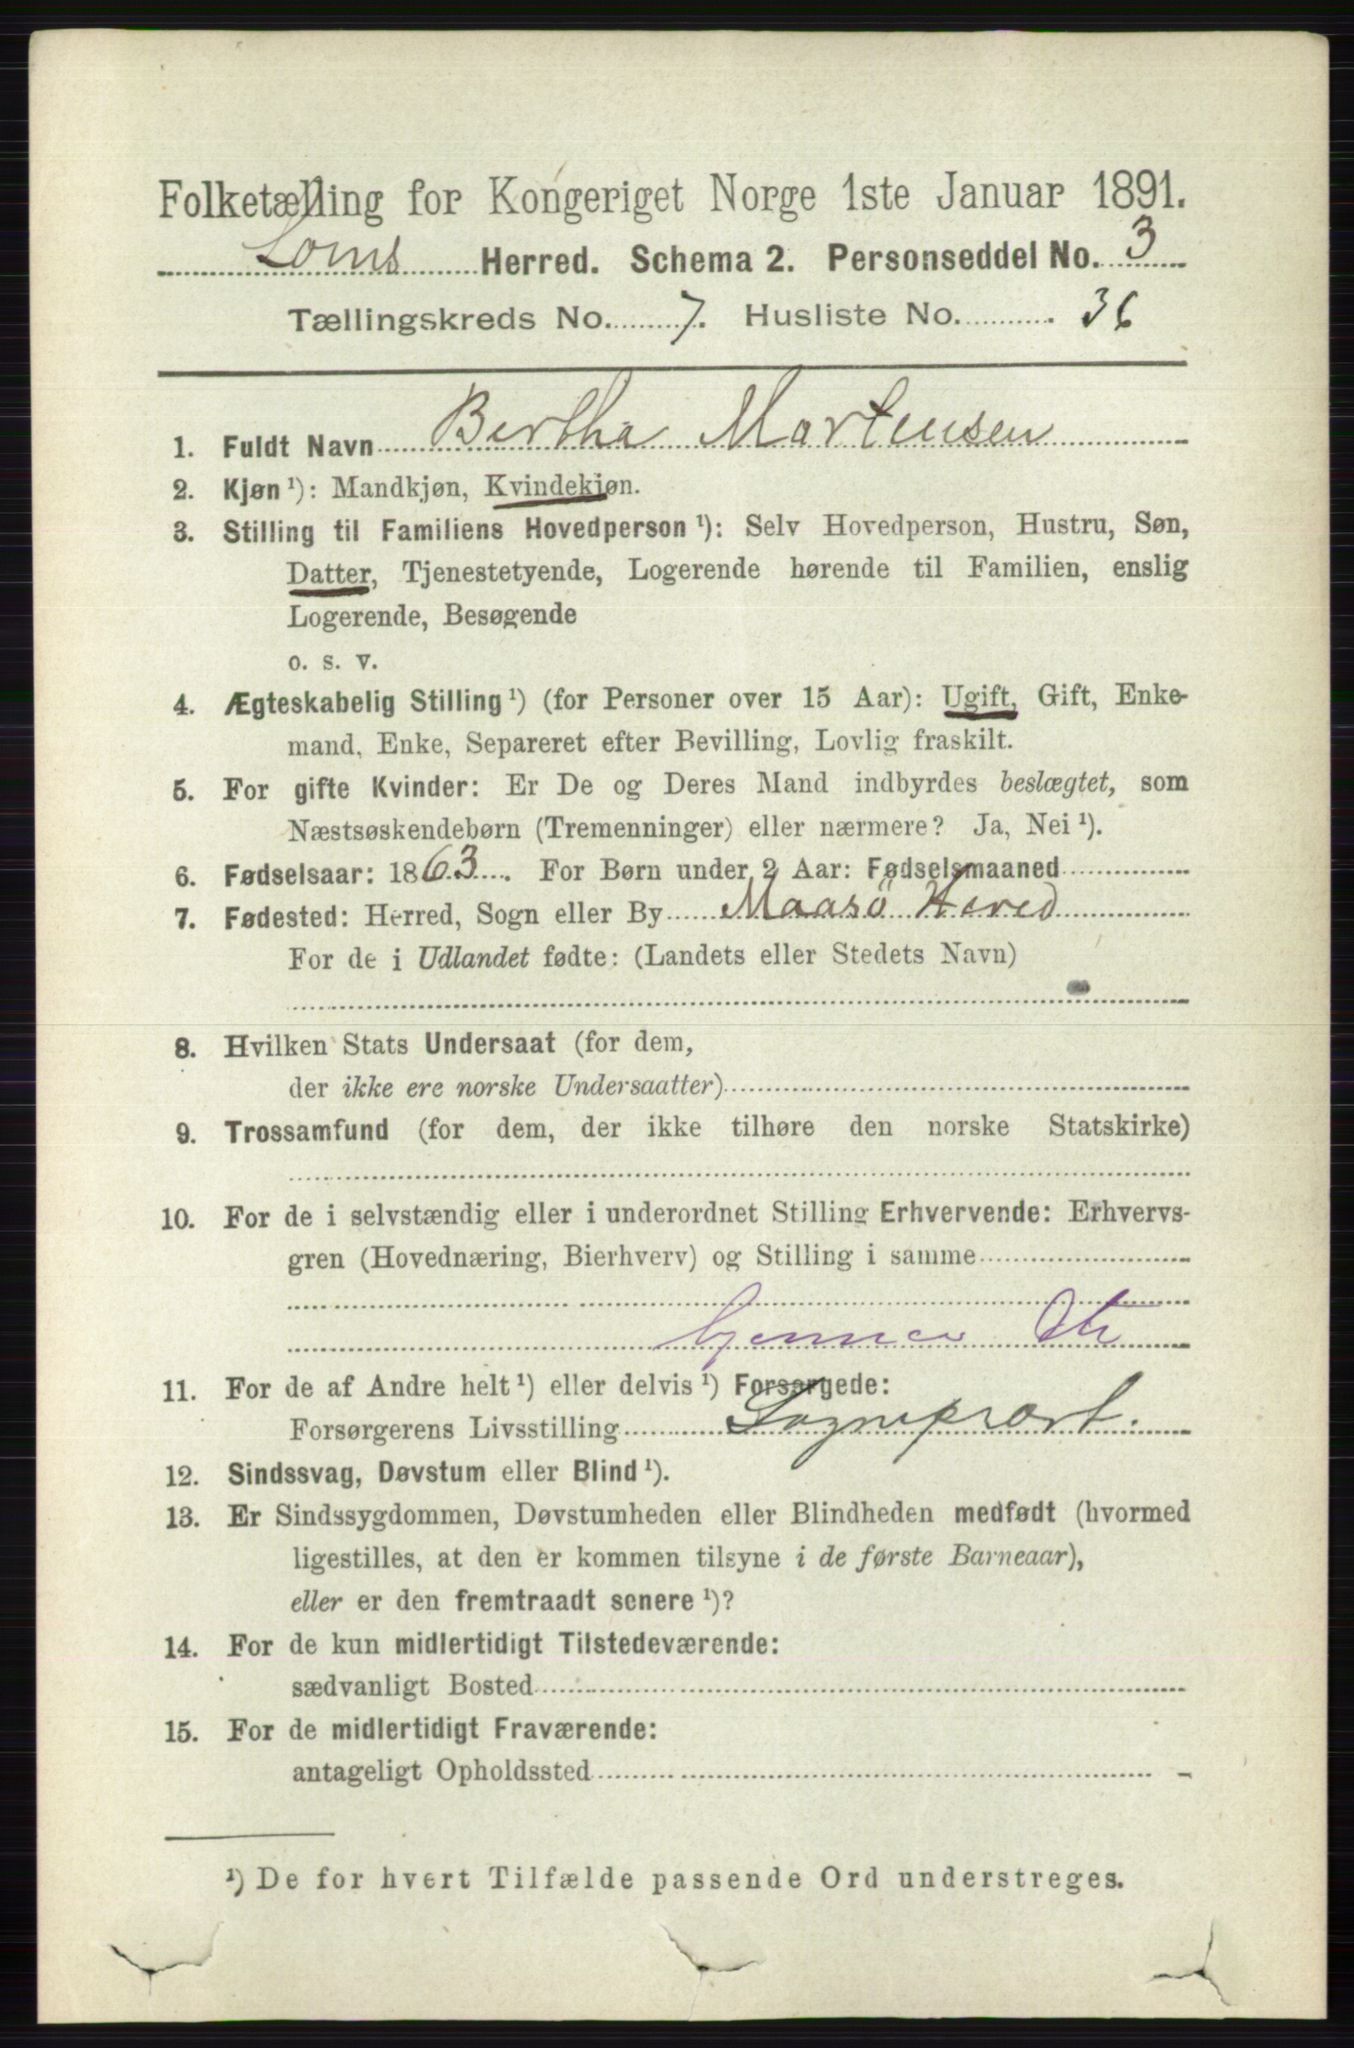 Folketælling for Kongeriget Norge 1ste Januar 1891.
Loms Herred. Schema 2. Personseddel No. 3
Tællingskreds No. 7. Husliste No. 36
1. Fuldt Navn Bertha Mortensen
2. Kjøn ¹): Mandkjøn, Kvindekjøn.
3. Stilling til Familiens Hovedperson ¹): Selv Hovedperson, Hustru, Søn,
Datter, Tjenestetyende, Logerende hørende til Familien, enslig
Logerende, Besøgende
o. s. v.
4. Ægteskabelig Stilling ¹) (for Personer over 15 Aar): Ugift, Gift, Enke-
mand, Enke, Separeret efter Bevilling, Lovlig fraskilt.
5. For gifte Kvinder: Er De og Deres Mand indbyrdes beslægtet, som
Næstsøskendebørn (Tremenninger) eller nærmere? Ja, Nei ¹).
6. Fødselsaar: 1863. For Børn under 2 Aar: Fødselsmaaned
7. Fødested: Herred, Sogn eller By Maasö Hered
For de i Udlandet fødte: (Landets eller Stedets Navn)
8. Hvilken Stats Undersaat (for dem,
der ikke ere norske Undersaatter)
9. Trossamfund (for dem, der ikke tilhøre den norske Statskirke)
10. For de i selvstændig eller i underordnet Stilling Erhvervende: Erhvervs-
gren (Hovednæring, Bierhverv) og Stilling i samme
11. For de af Andre helt ¹) eller delvis ¹) Forsørgede:
Forsørgerens Livsstilling Sognepræst.
12. Sindssvag, Døvstum eller Blind ¹).
13. Er Sindssygdommen, Døvstumheden eller Blindheden medfødt (hvormed
ligestilles, at den er kommen tilsyne i de første Barneaar),
eller er den fremtraadt senere ¹)?
14. For de kun midlertidigt Tilstedeværende:
sædvanligt Bosted
15. For de midlertidigt Fraværende:
antageligt Opholdssted
¹) De for hvert Tilfælde passende Ord understreges.